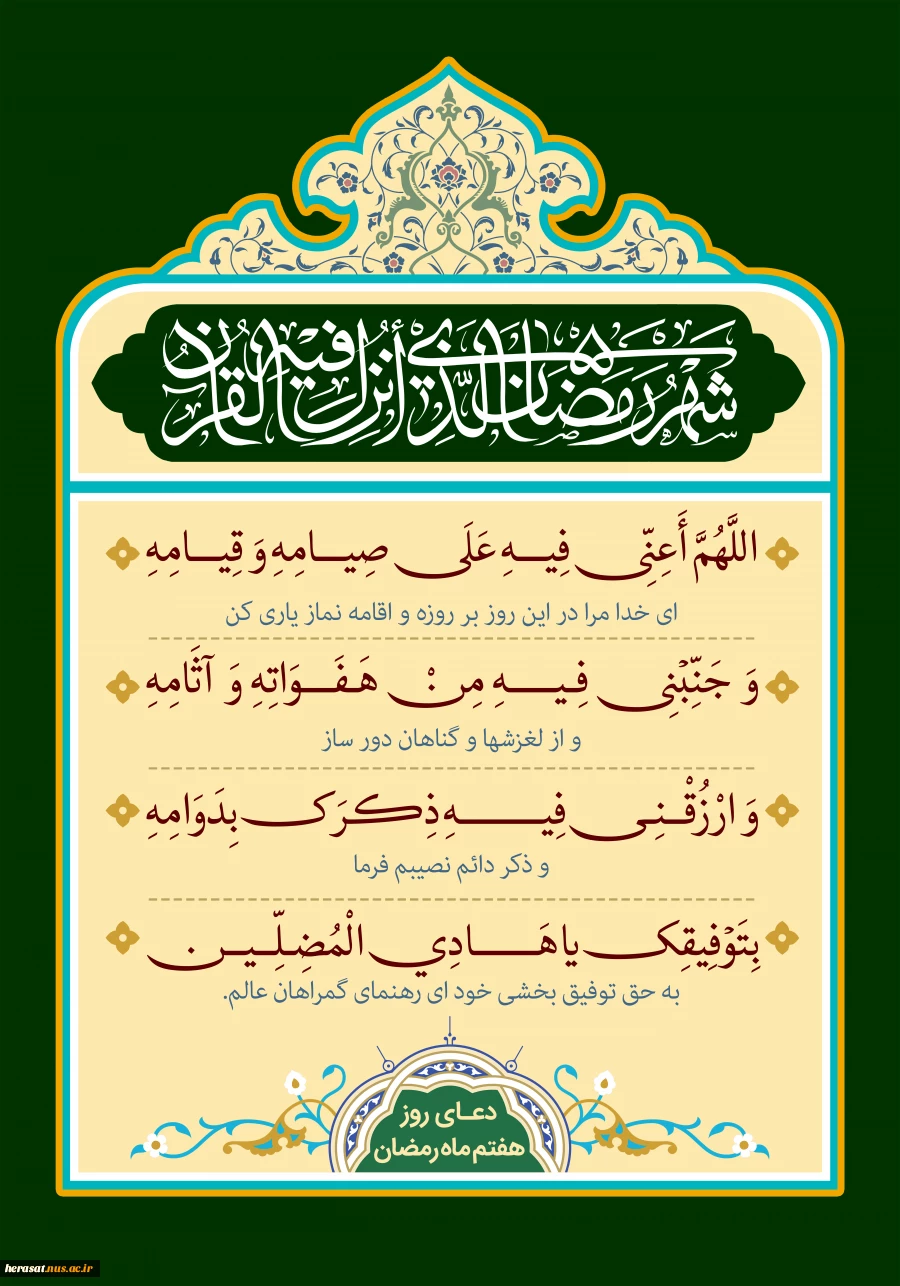 شَهْرُ رَمَضَانَ الَّذِي أُنْزِلَ فِيهِ الْقُرْآنُ
اللَّهُمَّ أَعِنِّي فِيهِ عَلَى صِيَامِهِ وَ قِيَامِهِ
ای خدا مرا در این روز بر روزه و اقامه نماز یاری کن
وَ جَنِّبْنِي فِيهِ مِنْ هَفَوَاتِهِ وَ آثَامِهِ
و از لغزشها و گناهان دور ساز
وَ ارْزُقْنِي فِيهِ ذِكْرَكَ بِدَوَامِهِ
و ذکر دائم نصیبم فرما
بِتَوْفِيقِكَ يا هَادِيَ الْمُضِلِّينَ
به حق توفیق بخشی خود ای رهنمای گمراهان عالم.
دعای روز
هفتم ماه رمضان
herasat.nus.ac.ir